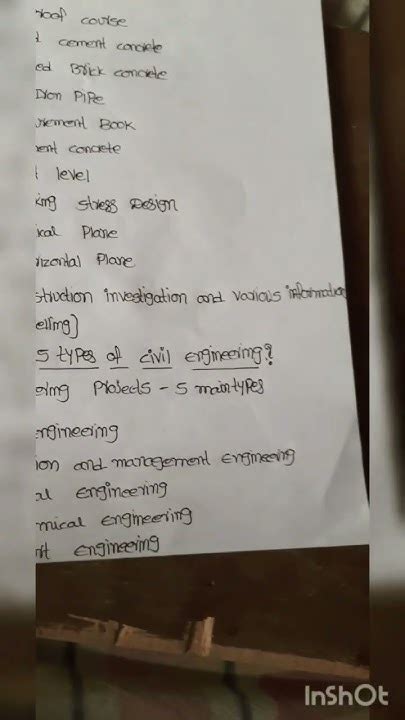 roof course
cement concrete
ed Brick concrete
Iron Pipe
urement Book
ent concrete
level
king stress Design
ical Plane
rizontal Plane
struction investigation and various information
elling)
5 types of civil engineering?
ering Projects - 5 main types
engineering
ion and management engineering
al engineering
mical engineering
rt engineering
InShOt